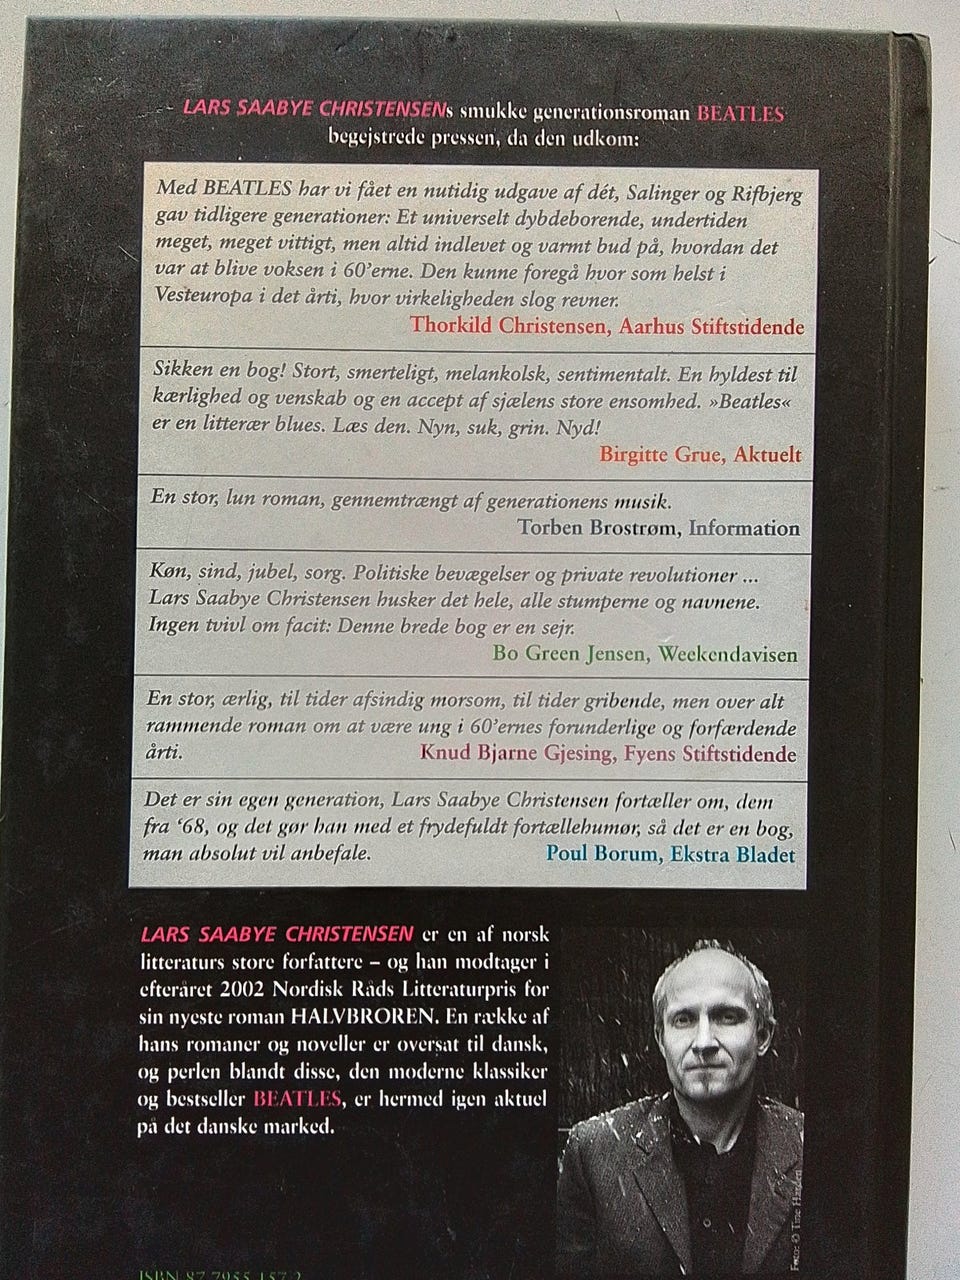 LARS SAABYE CHRISTENSENs smukke generationsroman BEATLES
begejstrede pressen, da den udkom:
Med BEATLES har vi fået en nutidig udgave af dét, Salinger og Rifbjerg
gav tidligere generationer: Et universelt dybdeborende, undertiden
meget, meget vittigt, men altid indlevet og varmt bud på, hvordan det
var at blive voksen i 60'erne. Den kunne foregå hvor som helst i
Vesteuropa i det årti, hvor virkeligheden slog revner.
Thorkild Christensen, Aarhus Stiftstidende
Sikken en bog! Stort, smerteligt, melankolsk, sentimentalt. En hyldest til
kærlighed og venskab og en accept af sjælens store ensomhed. »Beatles«
er en litterær blues. Læs den. Nyn, suk, grin. Nyd!
Birgitte Grue, Aktuelt
En stor, lun roman, gennemtrængt af generationens musik.
Torben Brostrøm, Information
Køn, sind, jubel, sorg. Politiske bevægelser og private revolutioner ...
Lars Saabye Christensen husker det hele, alle stumperne og navnene.
Ingen tvivl om facit: Denne brede bog er en sejr.
Bo Green Jensen, Weekendavisen
En stor, ærlig, til tider afsindig morsom, til tider gribende, men over alt
rammende roman om at være ung i 60'ernes forunderlige og forfærdende
årti. Knud Bjarne Gjesing, Fyens Stiftstidende
Det er sin egen generation, Lars Saabye Christensen fortæller om, dem
fra '68, og det gør han med et frydefuldt fortællehumør, så det er en bog,
man absolut vil anbefale. Poul Borum, Ekstra Bladet
LARS SAABYE CHRISTENSEN er en af norsk
litteraturs store forfattere – og han modtager i
efteråret 2002 Nordisk Råds Litteraturpris for
sin nyeste roman HALVBROREN. En række af
hans romaner og noveller er oversat til dansk,
og perlen blandt disse, den moderne klassiker
og bestseller BEATLES, er hermed igen aktuel
på det danske marked.
Foto: © Tine
ISBN 87 7955 157 2